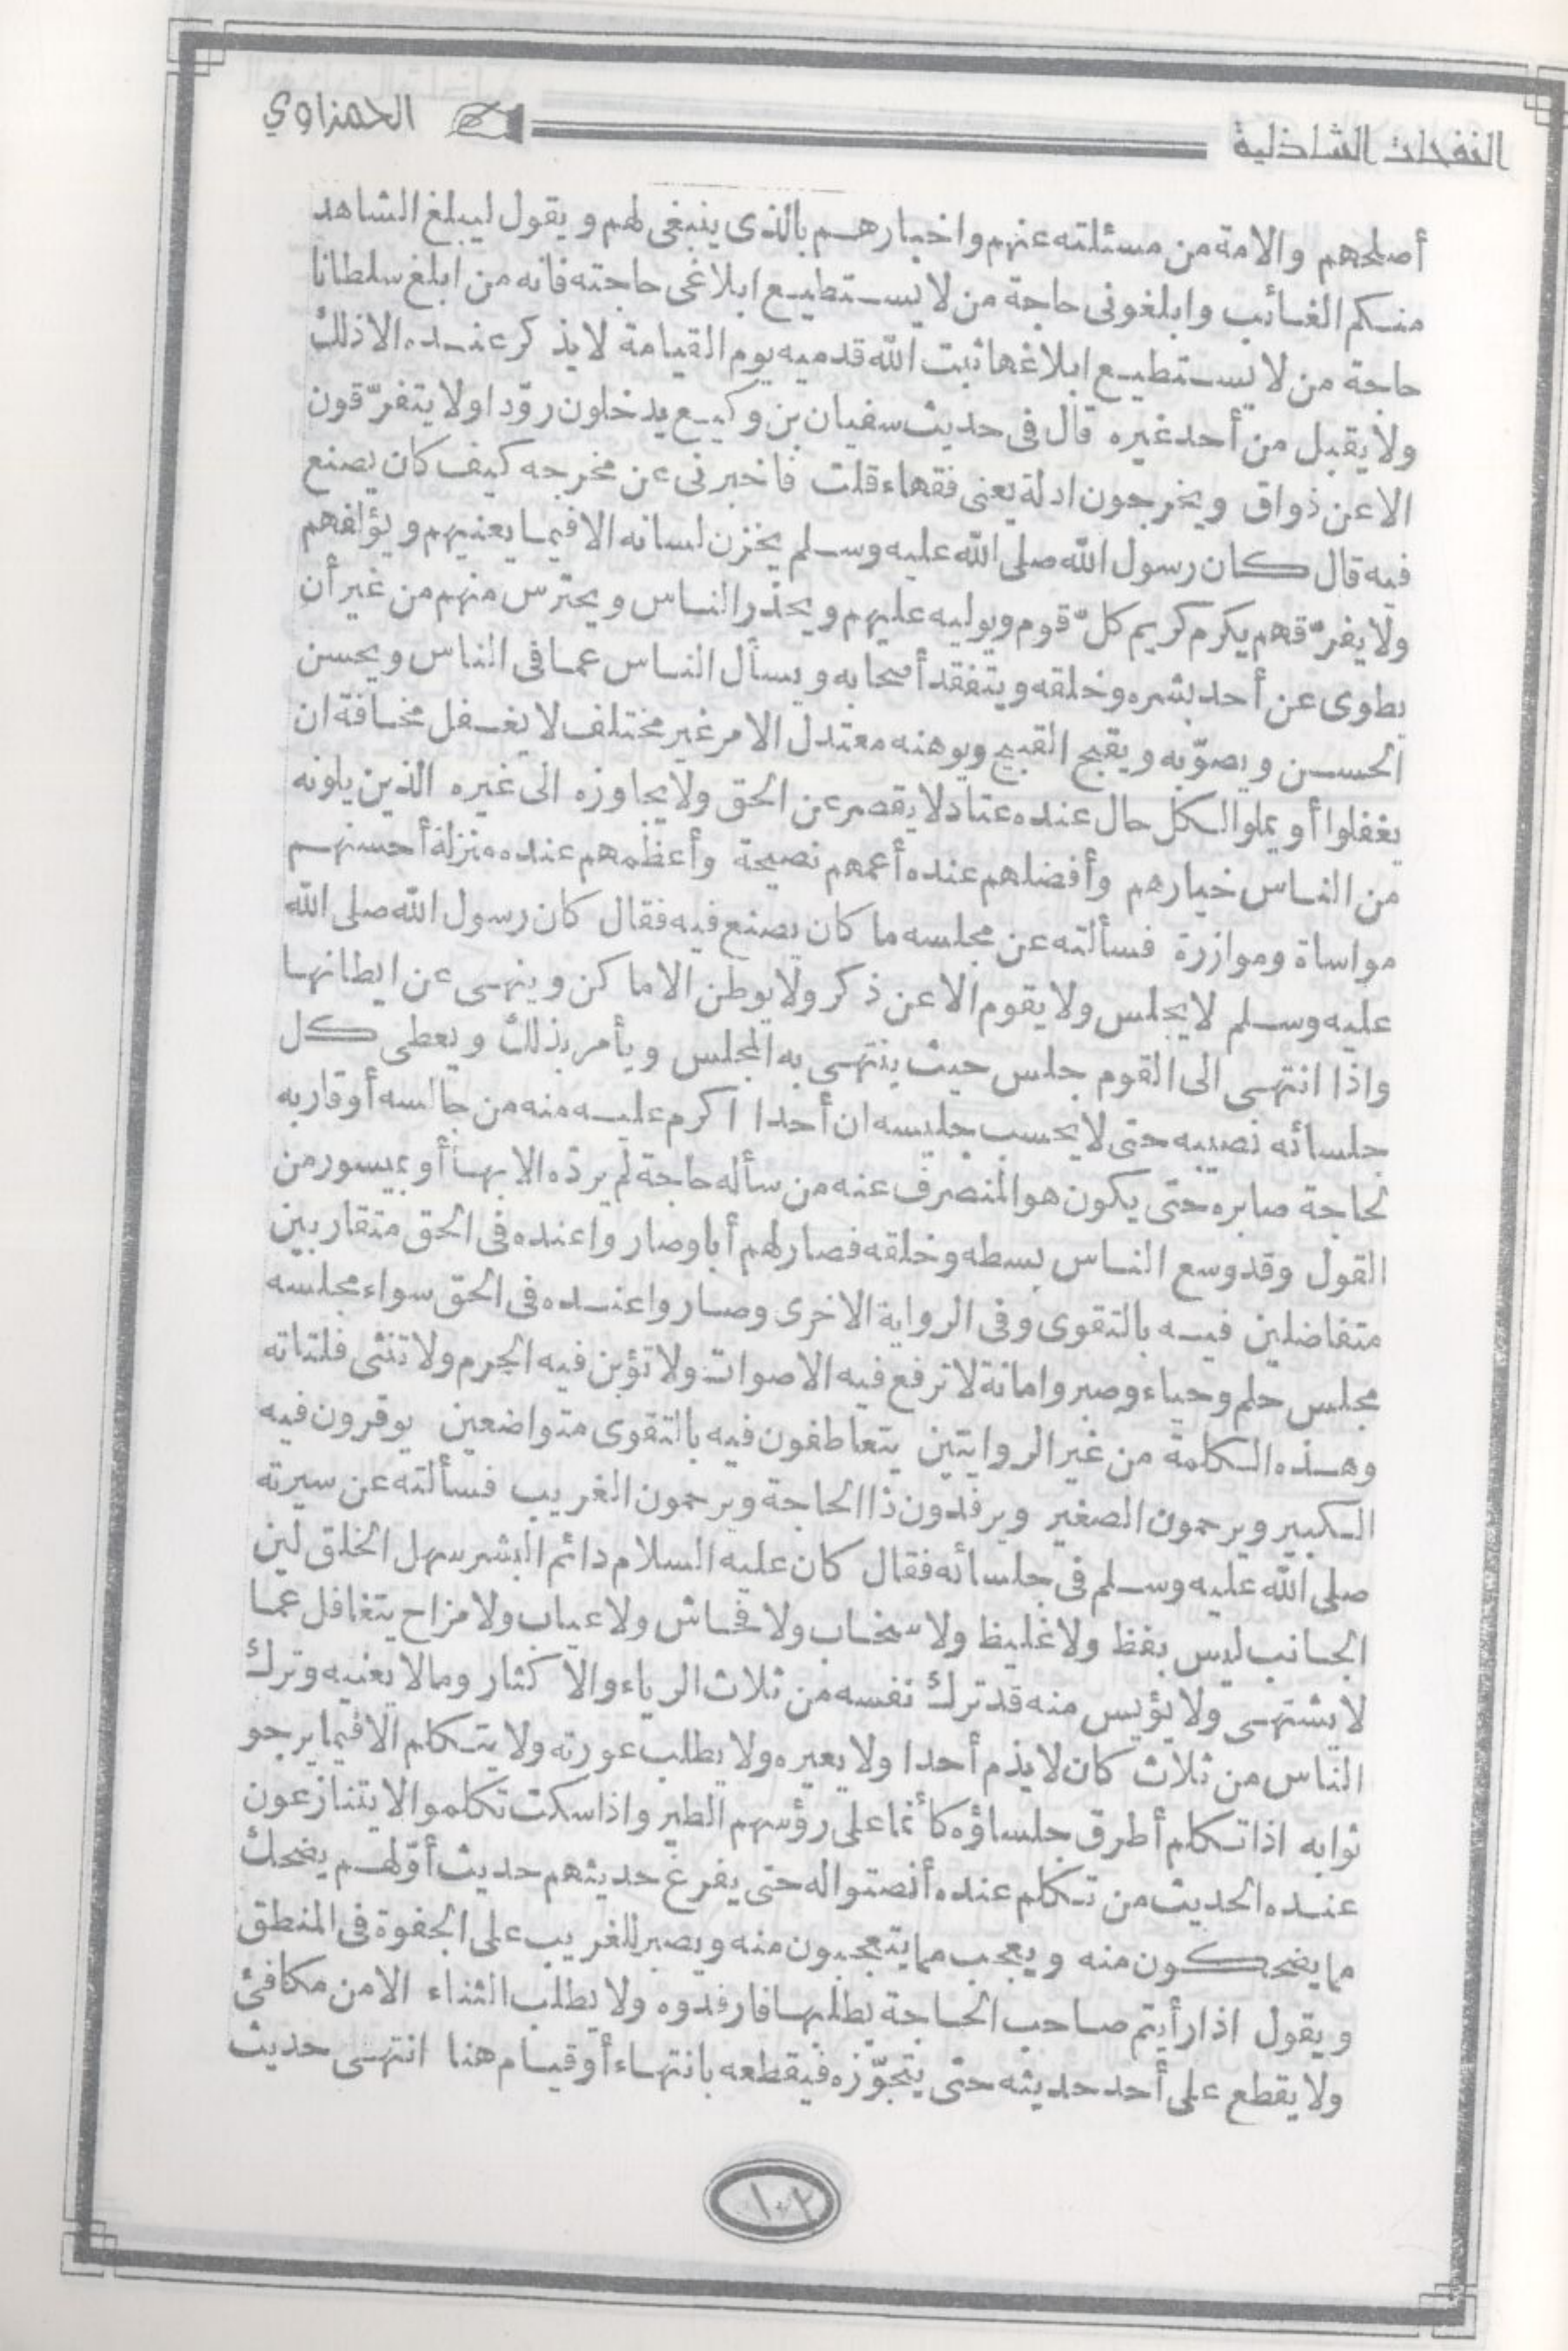 النفحات الشاذلية
الحمزاوي
أصلحهم والامة من مسئلته عنهم واخبارهم بالذى ينبغى لهم ويقول ليبلغ الشاهد
منكم الغائب وابلغونى حاجة من لا يستطيع ابلاغى حاجته فانه من ابلغ سلطانا
حاجة من لا يستطيع ابلاغها ثبت الله قدميه يوم القيامة لا يذكر عنده الا ذلك
ولا يقبل من أحد غيره قال فى حديث سفيان بن وكيع يدخلون روّدا ولا يتفرّقون
الا عن ذواق ويخرجون ادلة يعنى فقهاء قلت فاخبرنى عن مخرجه كيف كان يصنع
فيه قال كان رسول الله صلى الله عليه وسلم يخزن لسانه الا فيما يعنيهم ويؤلفهم
ولا يفرّقهم يكرم كريم كلّ قوم ويوليه عليهم ويحذر الناس ويحترس منهم من غير أن
يطوى عن أحد بشره وخلقه ويتفقد أصحابه ويسأل الناس عما فى الناس ويحسن
الحسن ويصوّبه ويقبح القبيح ويوهنه معتدل الامر غير مختلف لا يغفل مخافة ان
يغفلوا أو يملوا لكل حال عنده عتاد لا يقصر عن الحق ولا يجاوزه الى غيره الذين يلونه
من الناس خيارهم وأفضلهم عنده أعمهم نصيحة وأعظمهم عنده منزلة أحسنهم
مواساة وموازرة فسألته عن مجلسه ما كان يصنع فيه فقال كان رسول الله صلى الله
عليه وسلم لا يجلس ولا يقوم الا عن ذكر ولا يوطن الاماكن وينهى عن ايطانها
واذا انتهى الى القوم جلس حيث ينتهى به المجلس ويأمر بذلك ويعطى كل
جلسائه نصيبه حتى لا يحسب جليسه ان أحدا اكرم عليه منه من جالسه أو قاربه
لحاجة صابره حتى يكون هو المنصرف عنه من سأله حاجة لم يردّه الا بها أو بميسور من
القول وقد وسع الناس بسطه وخلقه فصار لهم أبا وصاروا عنده فى الحق متقاربين
متفاضلين فيه بالتقوى وفى الرواية الاخرى وصاروا عنده فى الحق سواء مجلسه
مجلس حلم وحياء وصبر وامانة لا ترفع فيه الاصوات ولا تؤبن فيه الحرم ولا تنثى فلتاته
وهذه الكلمة من غير الروايتين يتعاطفون فيه بالتقوى متواضعين يوقرون فيه
الكبير ويرحمون الصغير ويرفدون ذا الحاجة ويرحمون الغريب فسألته عن سيرته
صلى الله عليه وسلم فى جلسائه فقال كان عليه السلام دائم البشر سهل الخلق لين
الجانب ليس بفظ ولا غليظ ولا سخاب ولا فحاش ولا عياب ولا مزاح يتغافل عما
لا يشتهى ولا يؤيس منه قد ترك نفسه من ثلاث الرياء والاكثار وما لا يعنيه وترك
الناس من ثلاث كان لا يذم أحدا ولا يعيره ولا يطلب عورته ولا يتكلم الا فيما يرجو
ثوابه اذا تكلم أطرق جلساؤه كأنما على رؤسهم الطير واذا سكت تكلموا لا يتنازعون
عنده الحديث من تكلم عنده أنصتوا له حتى يفرغ حديثهم حديث أوّلهم يضحك
مما يضحكون منه ويعجب مما يتعجبون منه ويصبر للغريب على الجفوة فى المنطق
ويقول اذا رأيتم صاحب الحاجة يطلبها فارفدوه ولا يطلب الثناء الا من مكافئ
ولا يقطع على أحد حديثه حتى يتجوّزه فيقطعه بانتهاء أو قيام هنا انتهى حديث
١٠٢